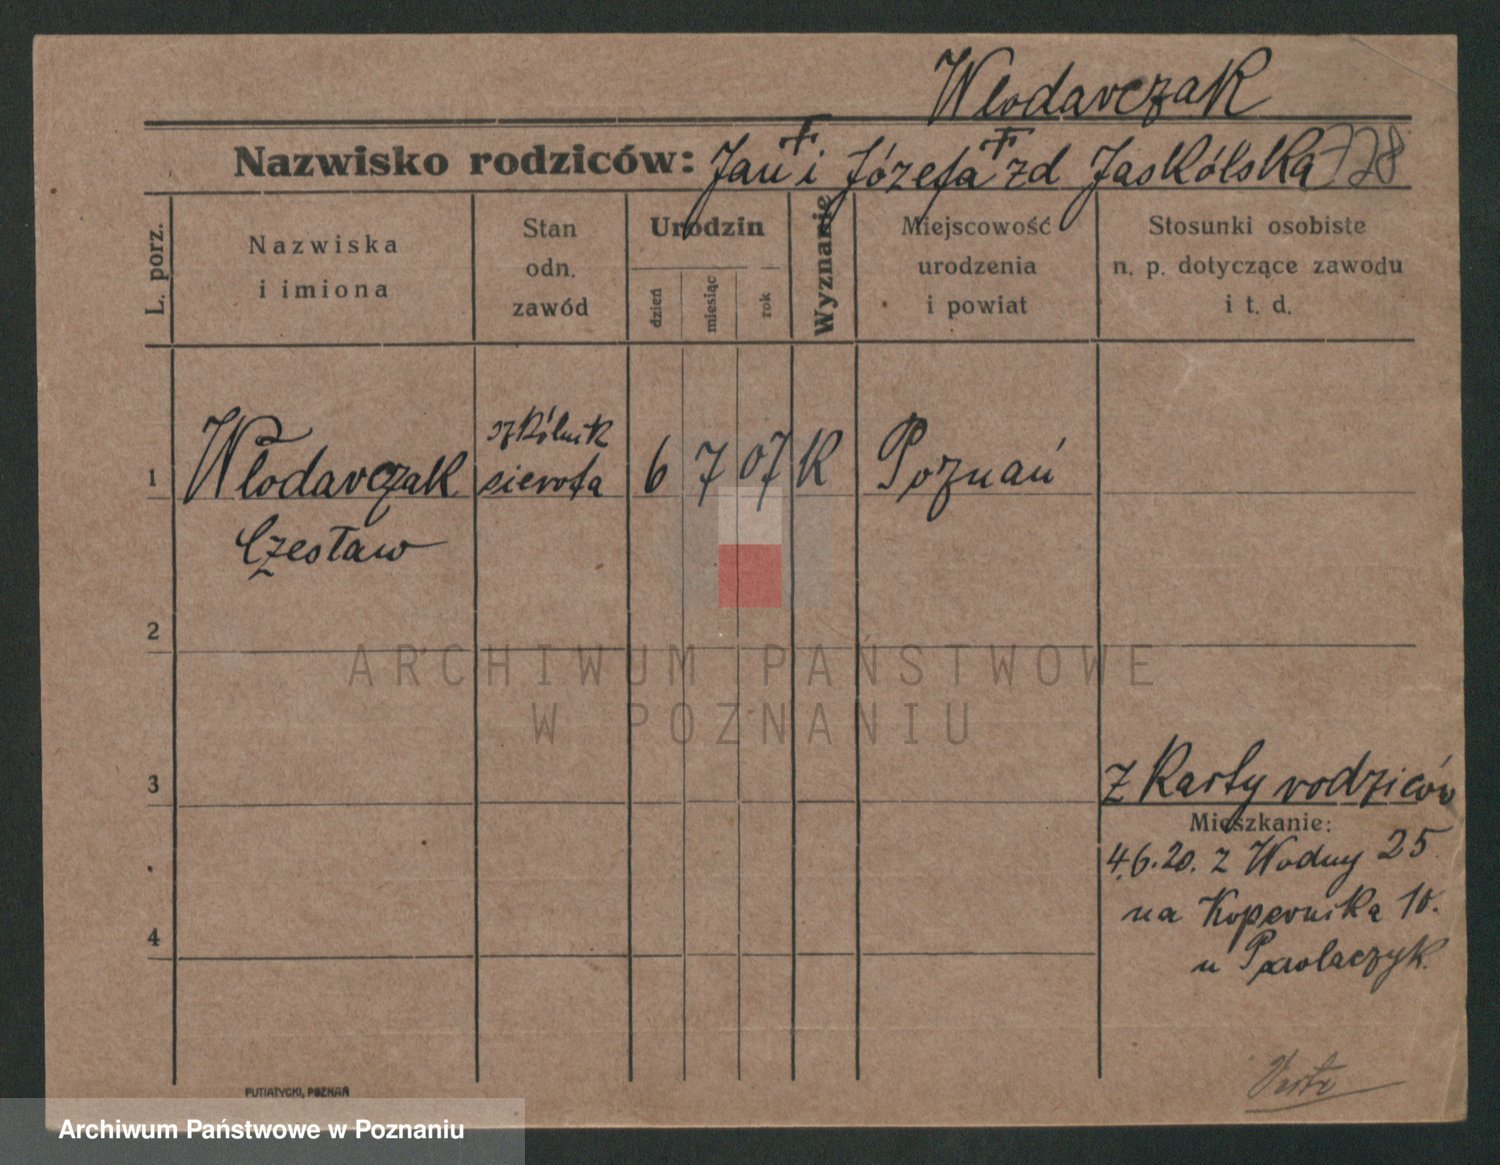 Włodarczak
Nazwisko rodziców: Jan † i Józefa † zd Jaskólska 778
L. porz.
Nazwiska
i imiona
Stan
odn.
zawód
Urodzin
dzień
miesiąc
rok
Wyznanie
Miejscowość
urodzenia
i powiat
Stosunki osobiste
n. p. dotyczące zawodu
i t. d.
szkólnik
1 Włodarczak sierota 6 7 07 K Poznań
Czesław
2
ARCHIWUM PAŃSTWOWE
W POZNANIU
3
z Karty rodziców
Mieszkanie:
4.6.20. z Wodny 25
na Kopernika 10.
4
u
PUTIATYCKI, POZNAŃ
Archiwum Państwowe w Poznaniu